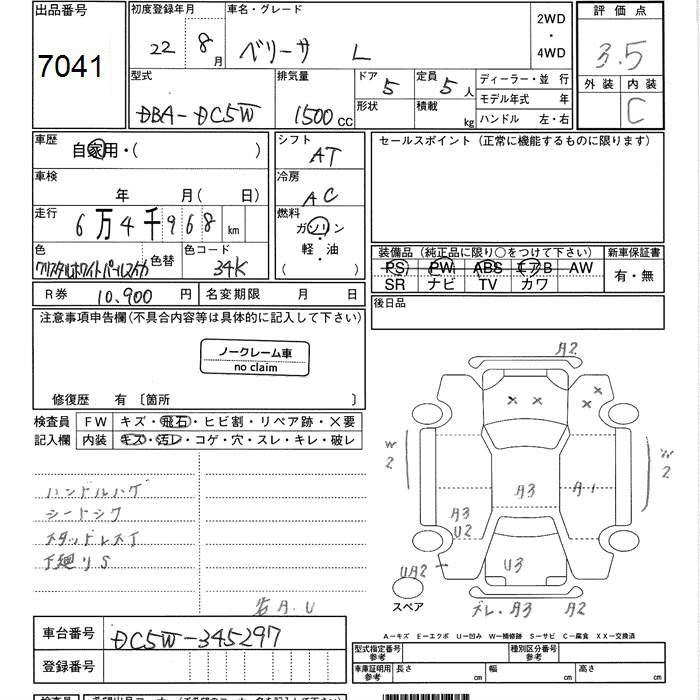 出品番号
7041
初度登録年月
22 8月
車名・グレード
ベリーサ L
2WD
・
4WD
評価点
3.5
外装 内装
C
型式
DBA-DC5W
排気量
1500cc
ドア 5
形状
定員 5人
積載 kg
ディーラー・並行
モデル年式 年
ハンドル 左・右
車歴
自家用・( )
シフト
AT
セールスポイント(正常に機能するものに限ります)
車検
年 月(日)
冷房
AC
走行
6万4千968km
燃料
ガソリン
・
軽・油
( )
色
クリスタルホワイトパールマイカ
色替
色コード
34K
装備品(純正品に限り○をつけて下さい)
PS PW ABS エアB AW
SR ナビ TV カワ
新車保証書
有・無
R券 10,900円
名変期限 月 日
後日品
注意事項申告欄(不具合内容等は具体的に記入して下さい)
ノークレーム車
no claim
修復歴 有〔箇所 〕
検査員
記入欄
FW キズ・飛石・ヒビ割・リペア跡・×要
内装 キズ・汚レ・コゲ・穴・スレ・キレ・破レ
ハンドルハゲ
シートシワ
スタッドレスT
下廻りS
A2
× ×
×
×
W
2
W
2
A3
A1
A3
U2
U3
UA2
スペア
ズレ・A3
A2
A.U
車台番号
DC5W-345297
登録番号
A-キズ E-エクボ U-凹み W-補修跡 S-サビ C-腐食 XX-交換済
型式指定番号
参考
種別区分番号
参考
車庫証明用
参考
長さ cm
幅 cm
高さ cm